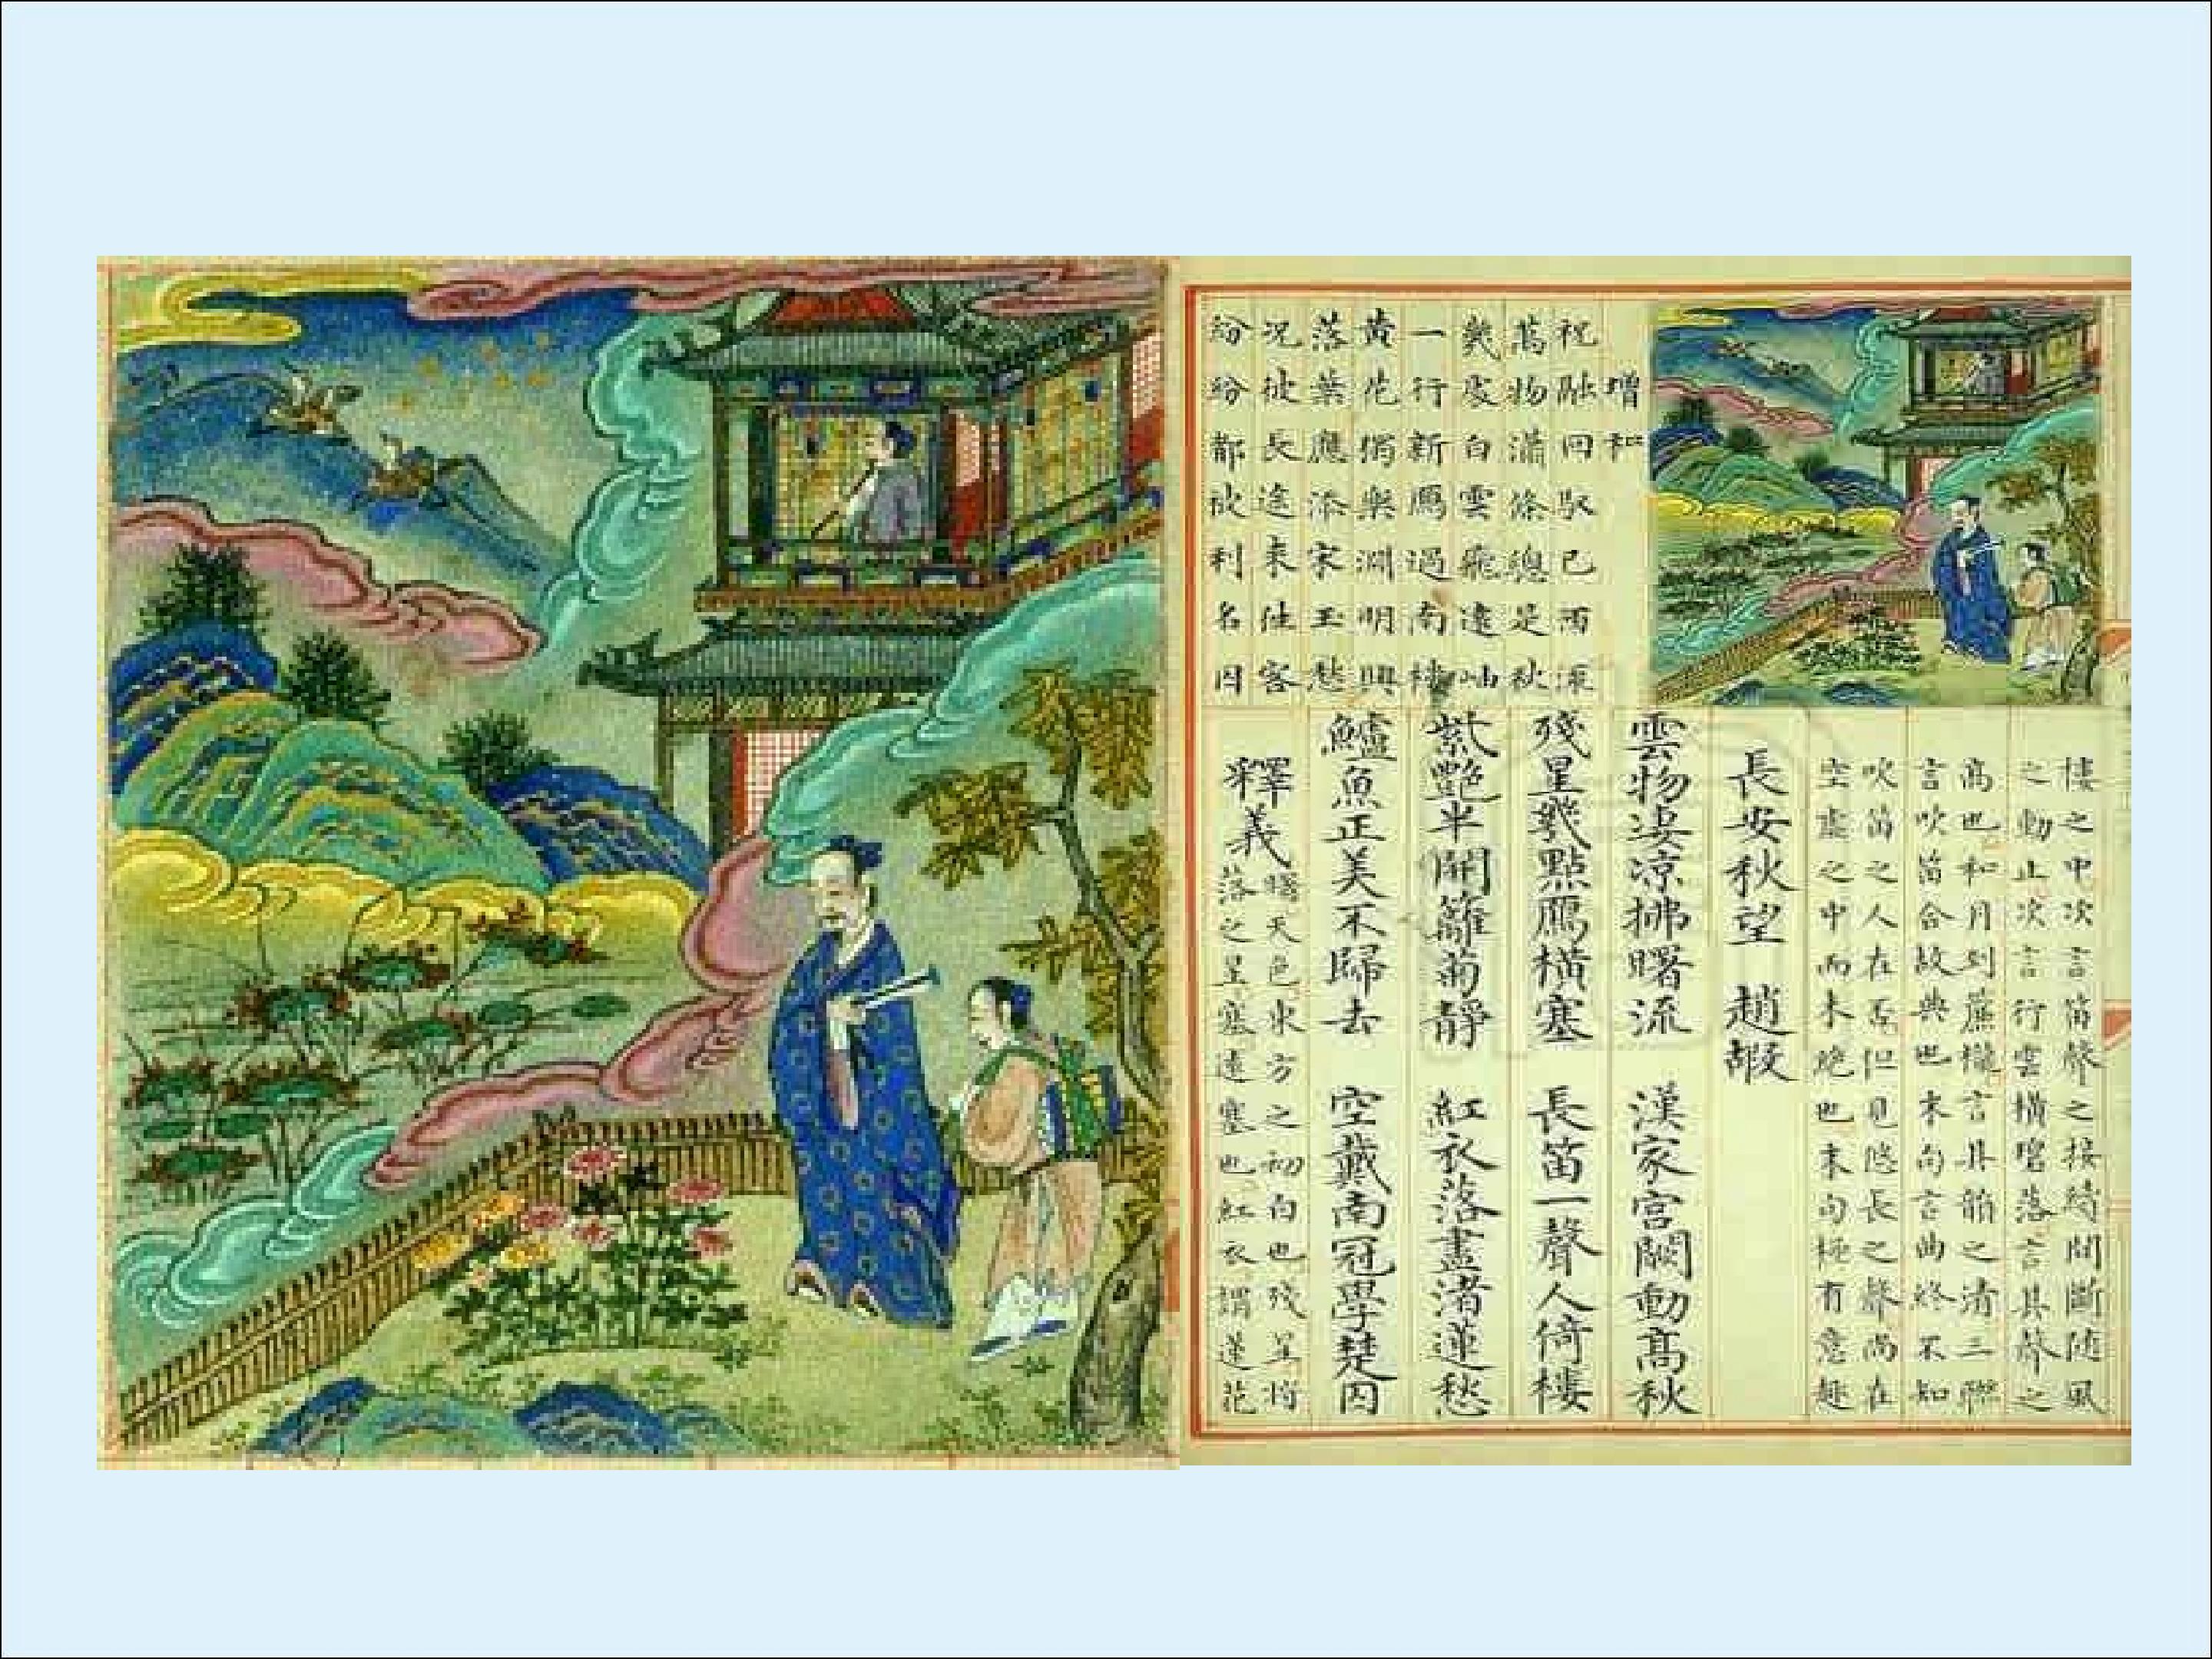 增和
祝融回馭已西流
萬物瀟條總是秋
幾處白雲飛遠岫
一行新鴈過南樓
黃花獨樂淵明興
落葉應添宋玉愁
況彼長途來往客
紛紛都被利名囚
樓之中次言笛聲之接續間斷隨風
之動止次言行雲橫噎落言其聲之
高也和月到簾櫳言其韻之清三聯
言吹笛合故典也末句言曲終不知
吹笛之人在否但見悠長之聲尚在
空虛之中而未絕也末句極有意趣
長安秋望 趙嘏
雲物淒涼拂曙流 漢家宮闕動高秋
殘星幾點鴈橫塞 長笛一聲人倚樓
紫艷半開籬菊靜 紅衣落盡渚蓮愁
鱸魚正美不歸去 空戴南冠學楚囚
釋義
曙天色東方之初白也殘星將
落之星塞遠塞也紅衣謂蓮花